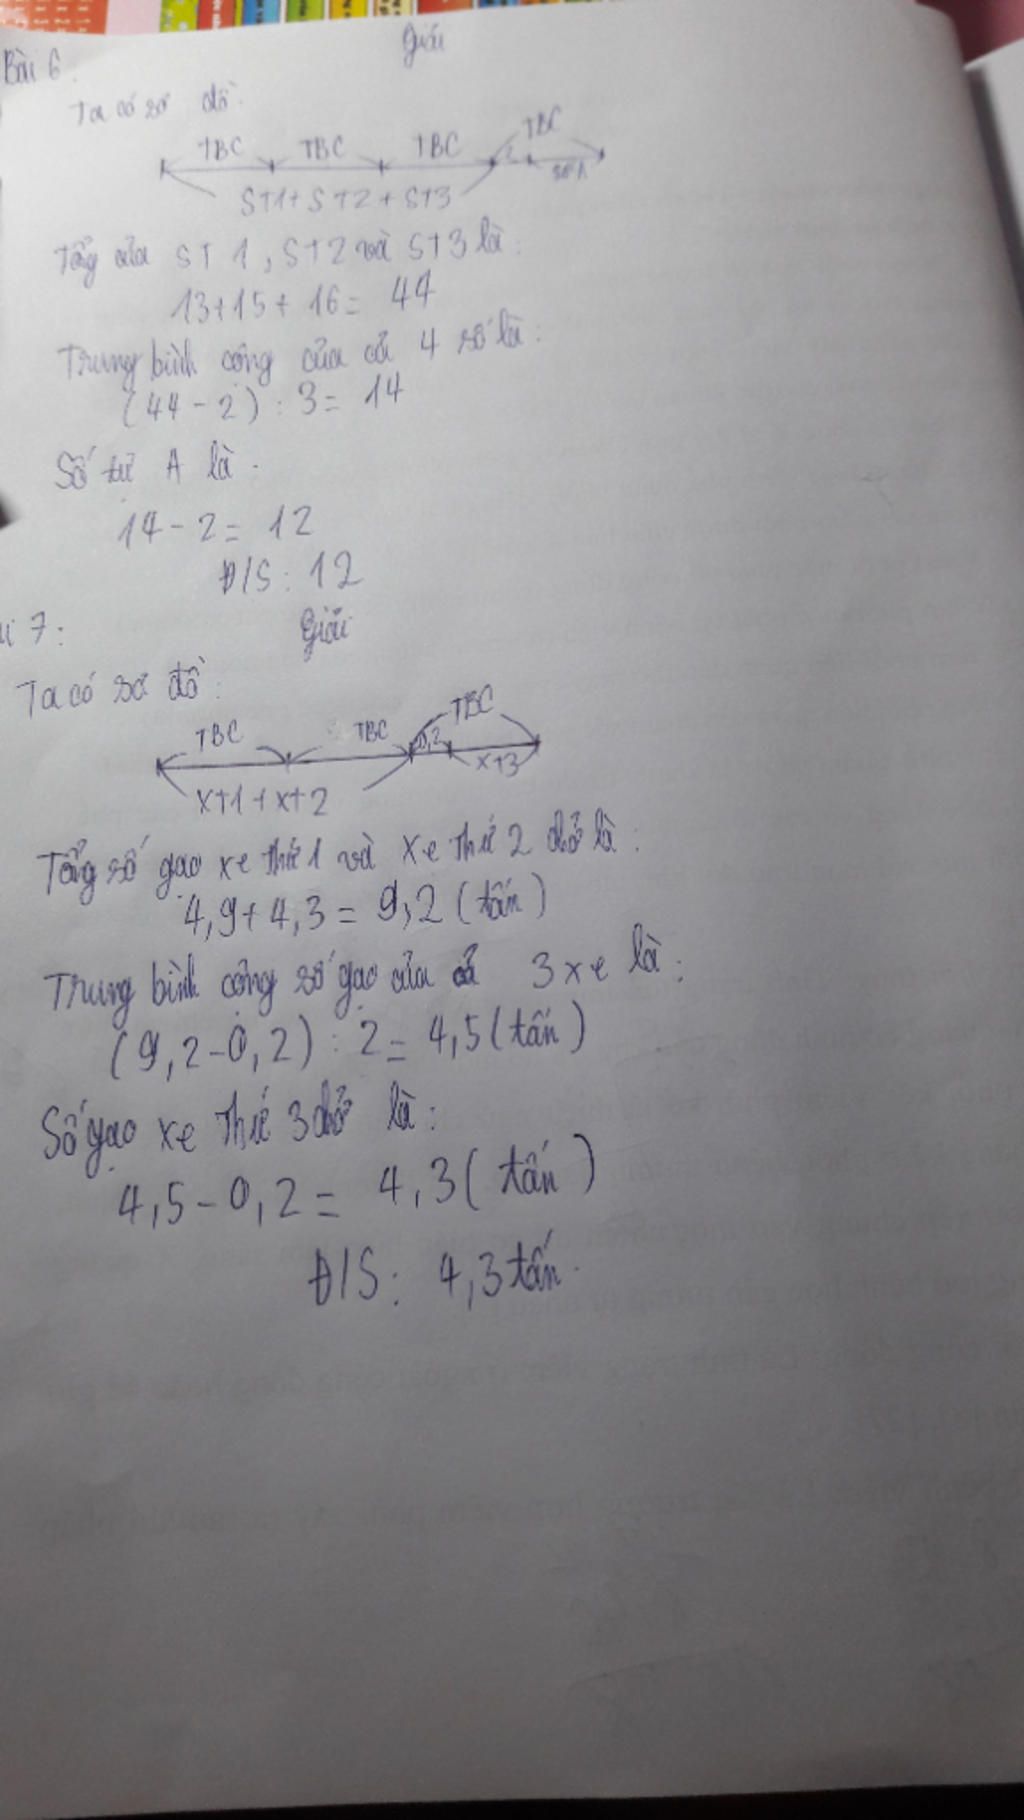 Bài 6.
Giải
Ta có sơ đồ:
TBC TBC TBC TBC
2 số A
ST1+ST2+ST3
Tổng của ST1, ST2 và ST3 là:
13+15+16= 44
Trung bình cộng của cả 4 số là:
(44-2):3= 14
Số tự A là:
14-2= 12
Đ/S: 12
7:
Giải
Ta có sơ đồ:
TBC TBC TBC
0,2 X+3
X+1+X+2
Tổng số gạo xe thứ 1 và xe thứ 2 chở là:
4,9+4,3=9,2(tấn)
Trung bình cộng số gạo của cả 3 xe là:
(9,2-0,2):2=4,5(tấn)
Số gạo xe thứ 3 chở là:
4,5-0,2= 4,3(tấn)
Đ/S: 4,3 tấn.